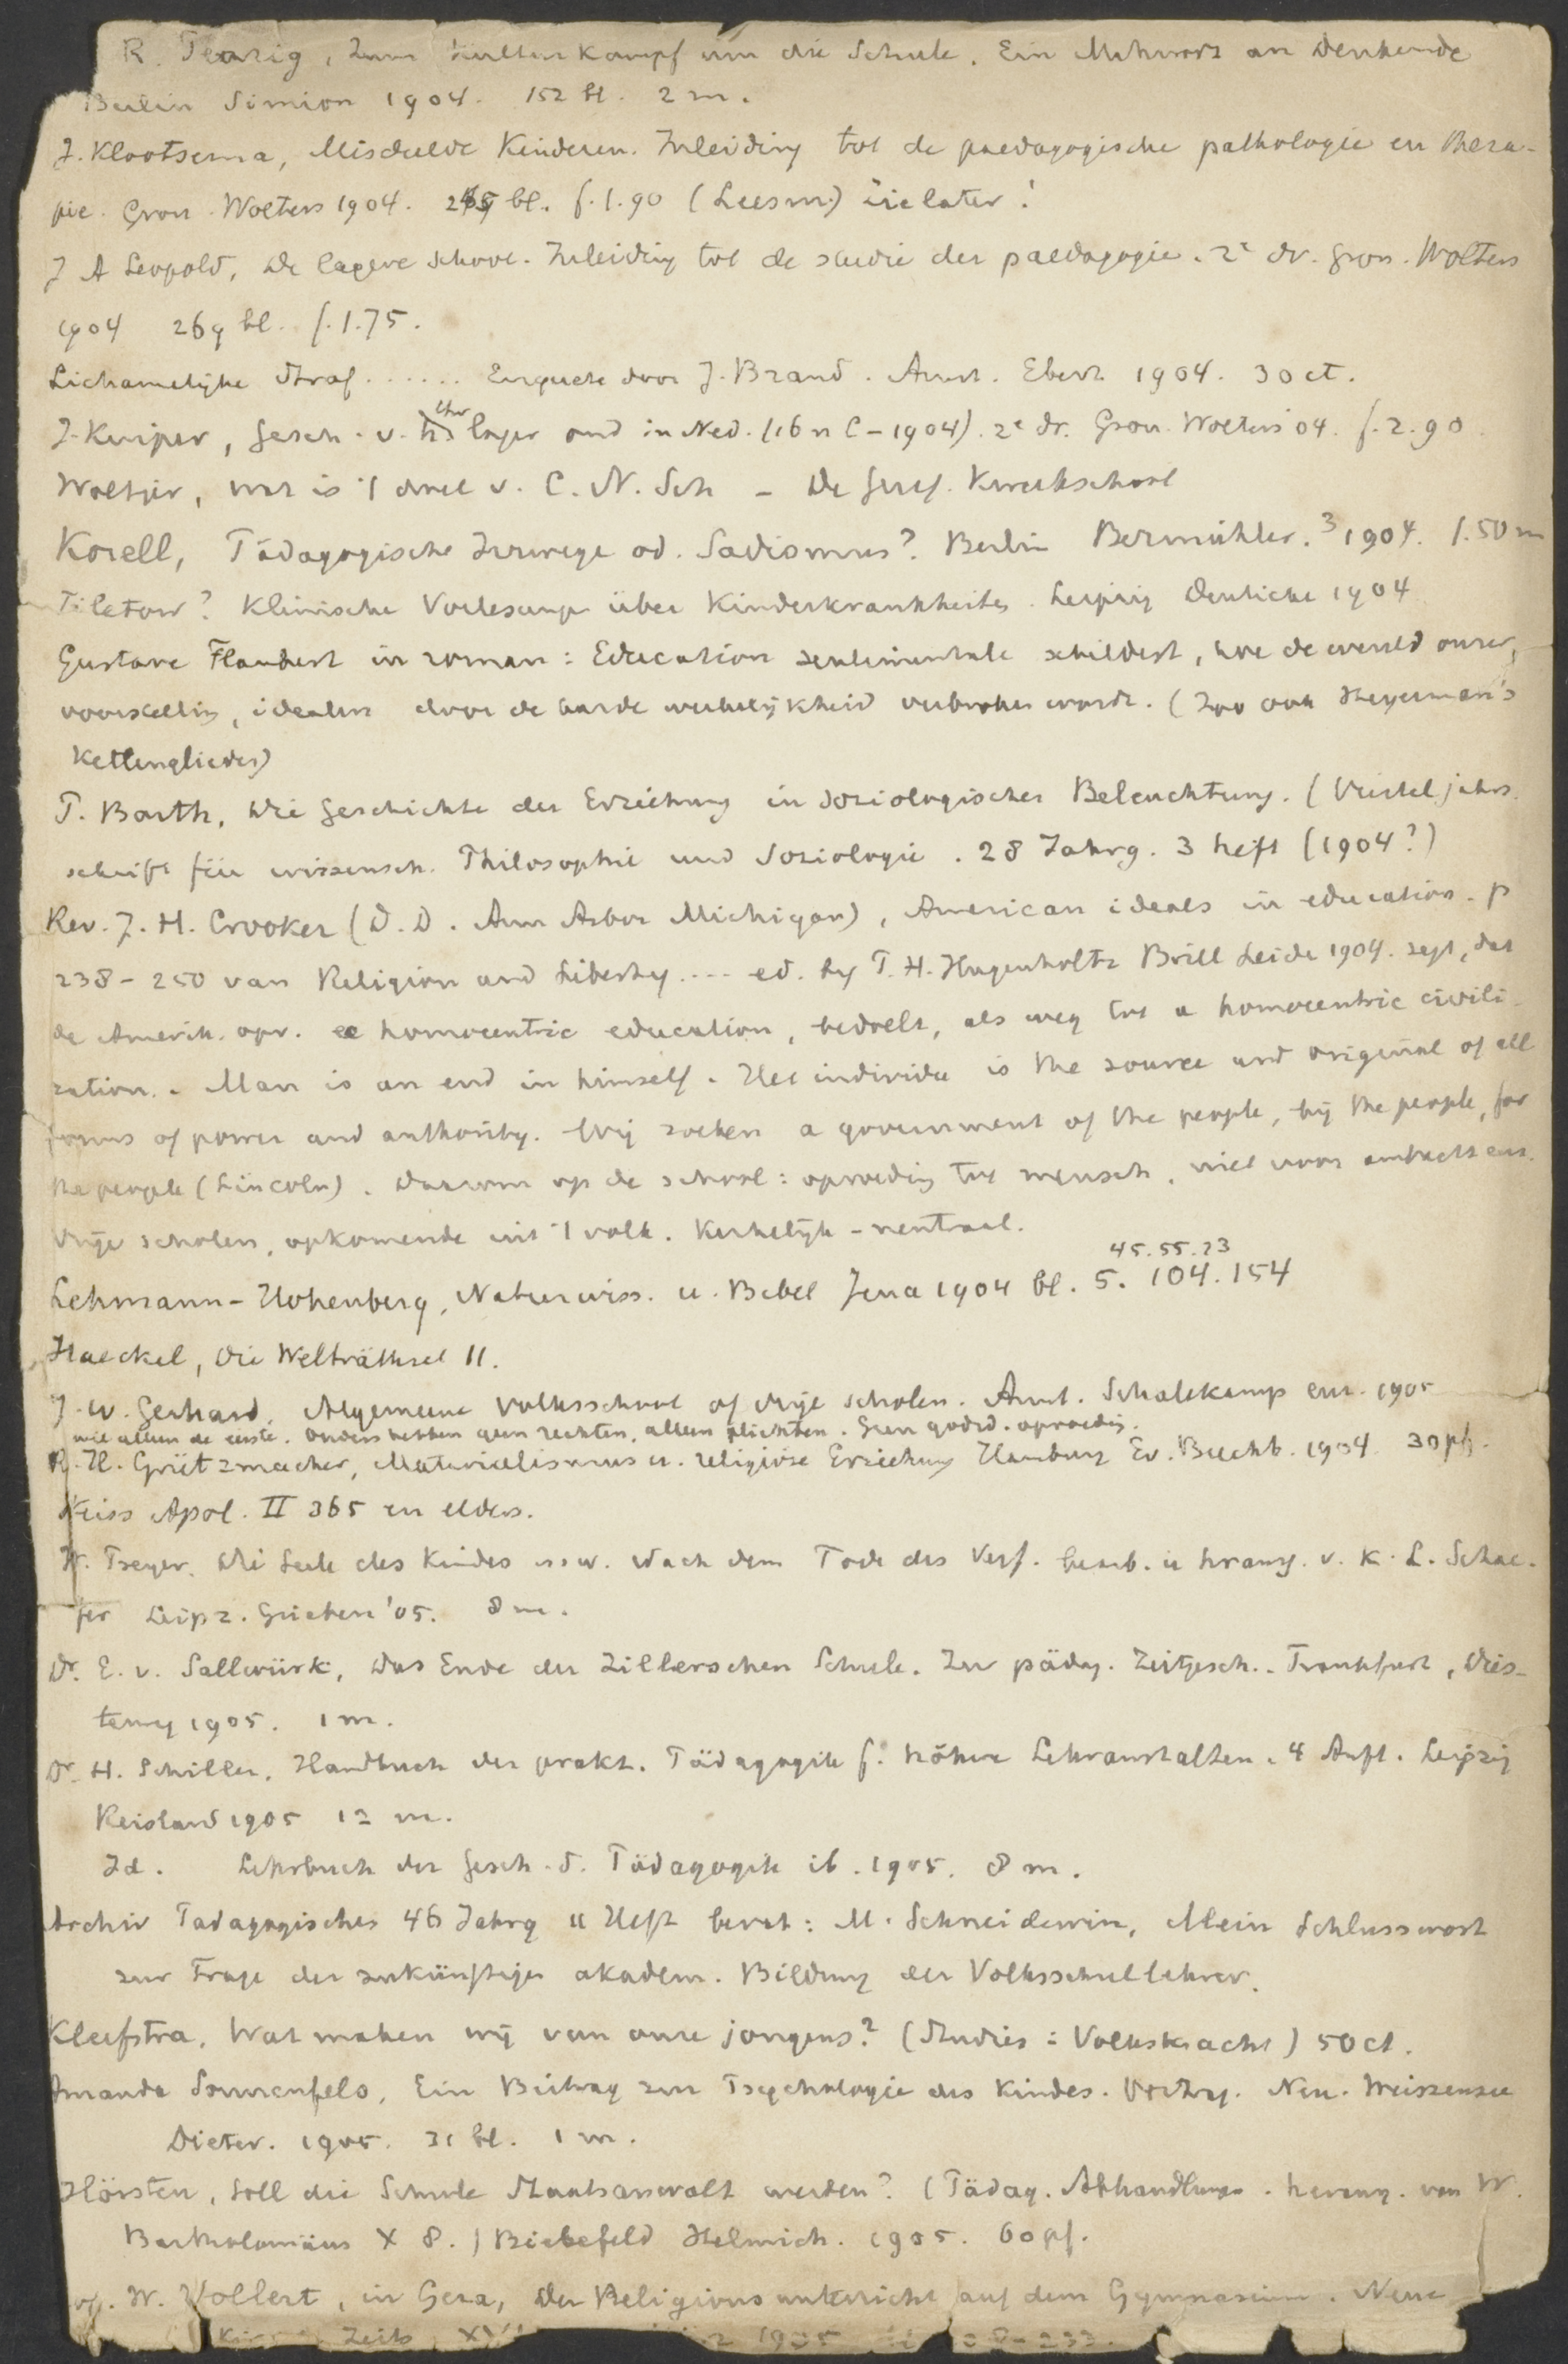 R. Penzig, Zum Kulturkampf um die Schule. Ein Mahnwort an Denkende
Berlin Simion 1904. 152 bl. 2 m.
J. Klootsema, Misdeelde Kinderen. Inleiding tot de paedagogische pathologie en thera-
pie. Gron. Wolters 1904. bl. f. 1.90 (Leesm.) Zie later!
J A Leopold, De lagere school. Inleiding tot de studie der paedagogie. 2e dr. Gron. Wolters
1904 269 bl. f. 1.75.
Lichamelijke straf ...... Enquete door J. Brand. Amst. Ebert 1904. 30 ct.
J. Kuiper, Gesch. v. h. chr lager ond in Ned. (16n C – 1904). 2e dr. Gron. Wolters '04. f. 2.90.
Woltjer, wat is 't doel v. C. N. Sch – De Geref. Kweekschool
Korell, Pädagogische Irrwege od. Sadismus? Berlin Bermühler. 3 1904. 1.50 m
Filatow? Klinische Vorlesungen über Kinderkrankheiten. Leipzig Deuticke 1904
Gustave Flaubert in roman: Education sentimentale schildert, hoe de wereld onzer
voorstelling, idealen door de harde werkelijkheid verbroken wordt. (Zoo ook Heyerman's
Kettenglieder)
P. Barth, Die Geschichte der Erziehung in soziologischer Beleuchtung. (Vierteljahrs
schrift für wissensch. Philosophie und Soziologie. 28 Jahrg. 3 heft (1904?)
Rev. J. H. Crooker (D. D. Ann Arbor Michigan), American ideals in education. p
238 – 250 van Religion and Liberty .... ed. by P. H. Hugenholtz Brill Leide 1904. zegt, dat
de Amerik. opv. homocentric education, bedoelt, als weg tot a homocentric civili-
zation. Man is an end in himself. Het individu is the source and original of all
forms of power and authority. Wij zoeken a government of the people, by the people, for
the people (Lincoln). Daarom op de school: opvoeding tot mensch, niet voor ambacht enz.
Vrije scholen, opkomende uit 't volk. Kerkelijk – neutraal.
45. 55. 73
Lehmann-Hohenberg, Naturwiss. u. Bibel Jena 1904 bl. 5. 104. 154
Haeckel, Die Welträthsel 11.
J. W. Gerhard. Algemeene Volksschool of vrije scholen. Amst. Schalekamp enz. 1905
wil alleen de eerste. Ouders hebben geen rechten, alleen plichten. Geen godsd. opvoeding.
R. H. Grützmacher, Materialismus u. religiöse Erziehung Hamburg Ev. Buchh. 1904 30 pf.
Weiss Apol. II 365 en elders.
W. Preyer. Die Seele des Kindes usw. Nach dem Tode des Verf. bearb. u herausg. v. K. L. Schae-
fer Leipz. Grieben '05. 8 m.
Dr. E. v. Sallwürk, Das Ende der Zillerschen Schule. Zur pädag. Zeitgesch. Frankfurt, Dies-
terweg 1905. 1 m.
Dr. H. Schiller. Handbuch der prakt. Pädagogik f. höhere Lehranstalten. 4 Aufl. Leipzig
Reisland 1905 12 m.
Id. Lehrbuch der Gesch. d. Pädagogik ib. 1905. 8 m.
Archiv Padagogisches 46 Jahrg 11 Heft bevat: M. Schneidewin, Mein Schlusswort
zur Frage der zukünftigen akadem. Bildung der Volksschullehrer.
Kleefstra. Wat maken wij van onze jongens? (Studies: Volkskracht) 50 ct.
Amanda Sonnenfels, Ein Beitrag zur Psychologie des Kindes. Vortrag. Neu-Weissensee
Dieter. 1905. 31 bl. 1 m.
Hörsten, Soll die Schule Staatsanwalt werden? (Pädag. Abhandlungen. herausg. von W.
Bartholomäus X 8.) Bielefeld Helmich. 1905. 60 pf.
W. Vollert, in Gera, Der Religionsunterricht auf dem Gymnasium. Neue
Zeits 1905 233.